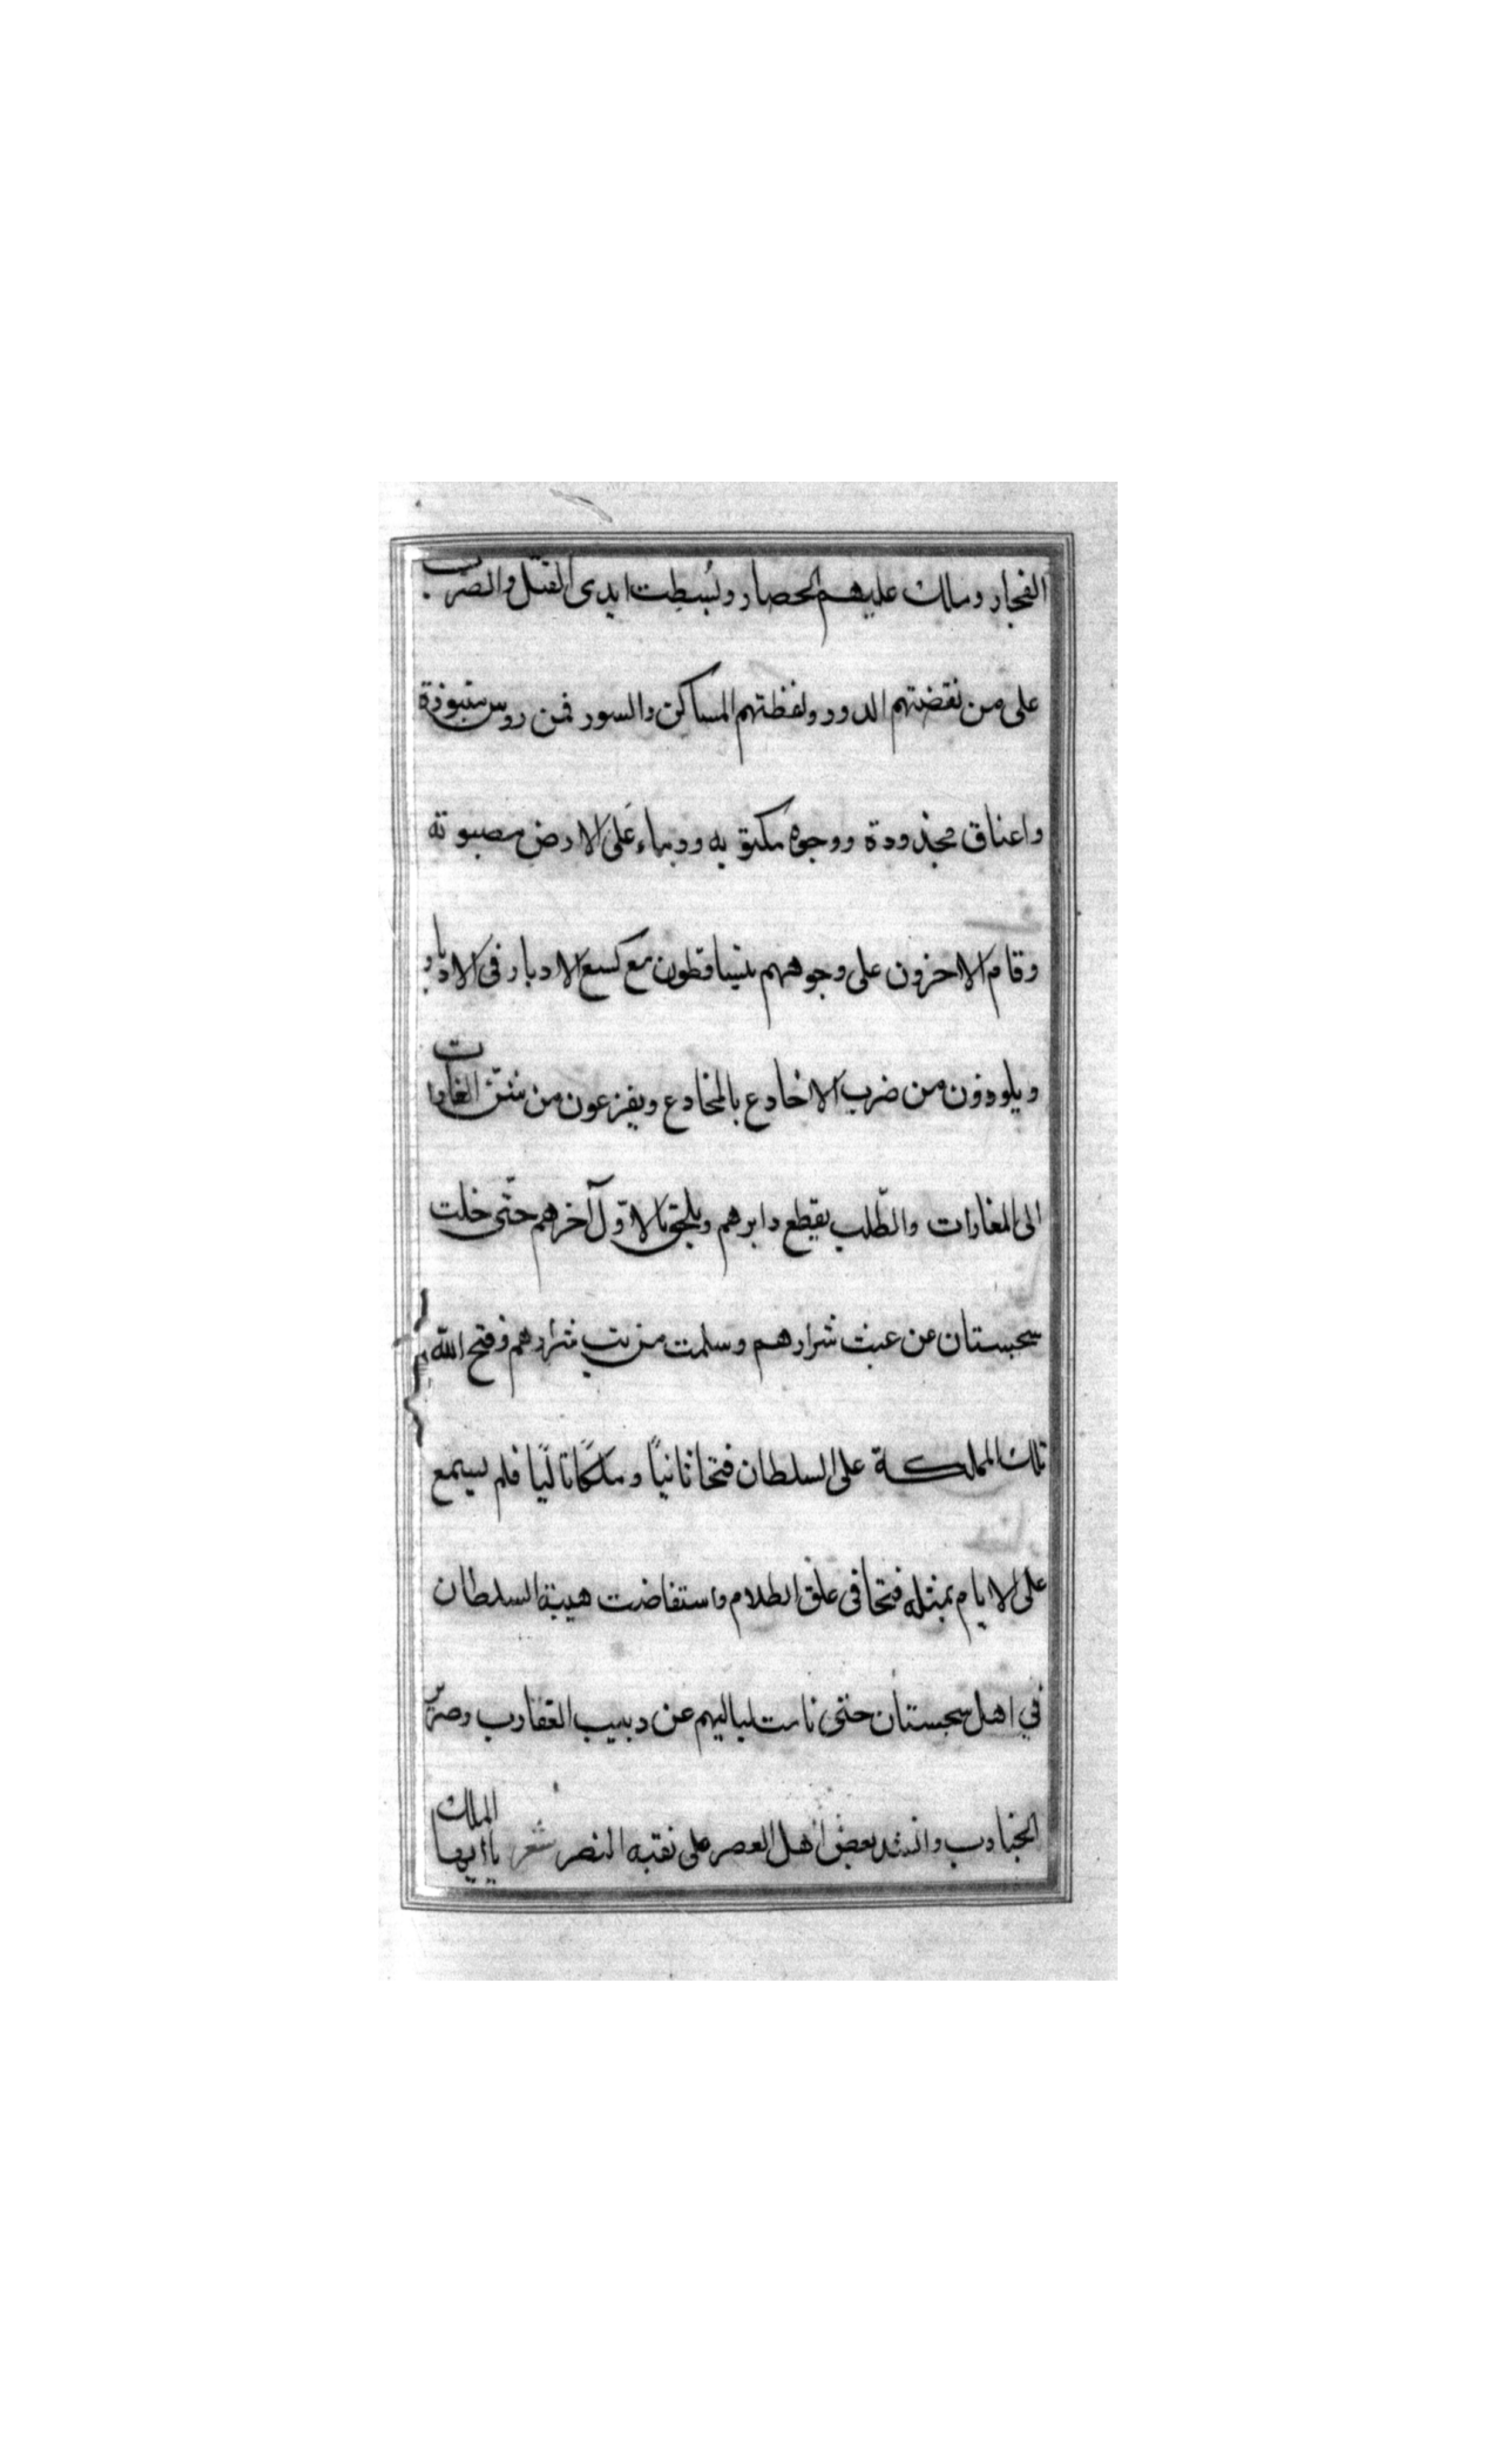 الفجار وملك عليهم الحصار وبُسِطت ايدى القتل والضرب
على من نقضتهم الدور ولفظتهم المساكن والسور فمن روس منبوذة
واعناق مجذودة ووجوه مكبوبه ودماء عَلى الارض مصبوبه
وقام الاخرون على وجوههم يتساقطون مع كسع الادبار فى الادبار
ويلوذون من ضرب الاخادع بالمخادع ويفزعون من شنّ الغارات
الى المغارات والطّلب يقطع دابرهم ويلحق بالاوّل آخرهم حتّى خلت
سجستان عن عبث شرارهم وسلمت من شرارهم وفتح اللّه
تلك المملكة على السلطان فتحا ثانياً وملكاً تالياً فلم يسمع
على الايام بمثله فتحا فى غلق الظلام واستفاضت هيبة السلطان
في اهل سجستان حتى نامت لياليهم عن دبيب العقارب وصرير
الجنادب وانشد بعض اهل العصر على نقبه النصر شعر ياايها الملك